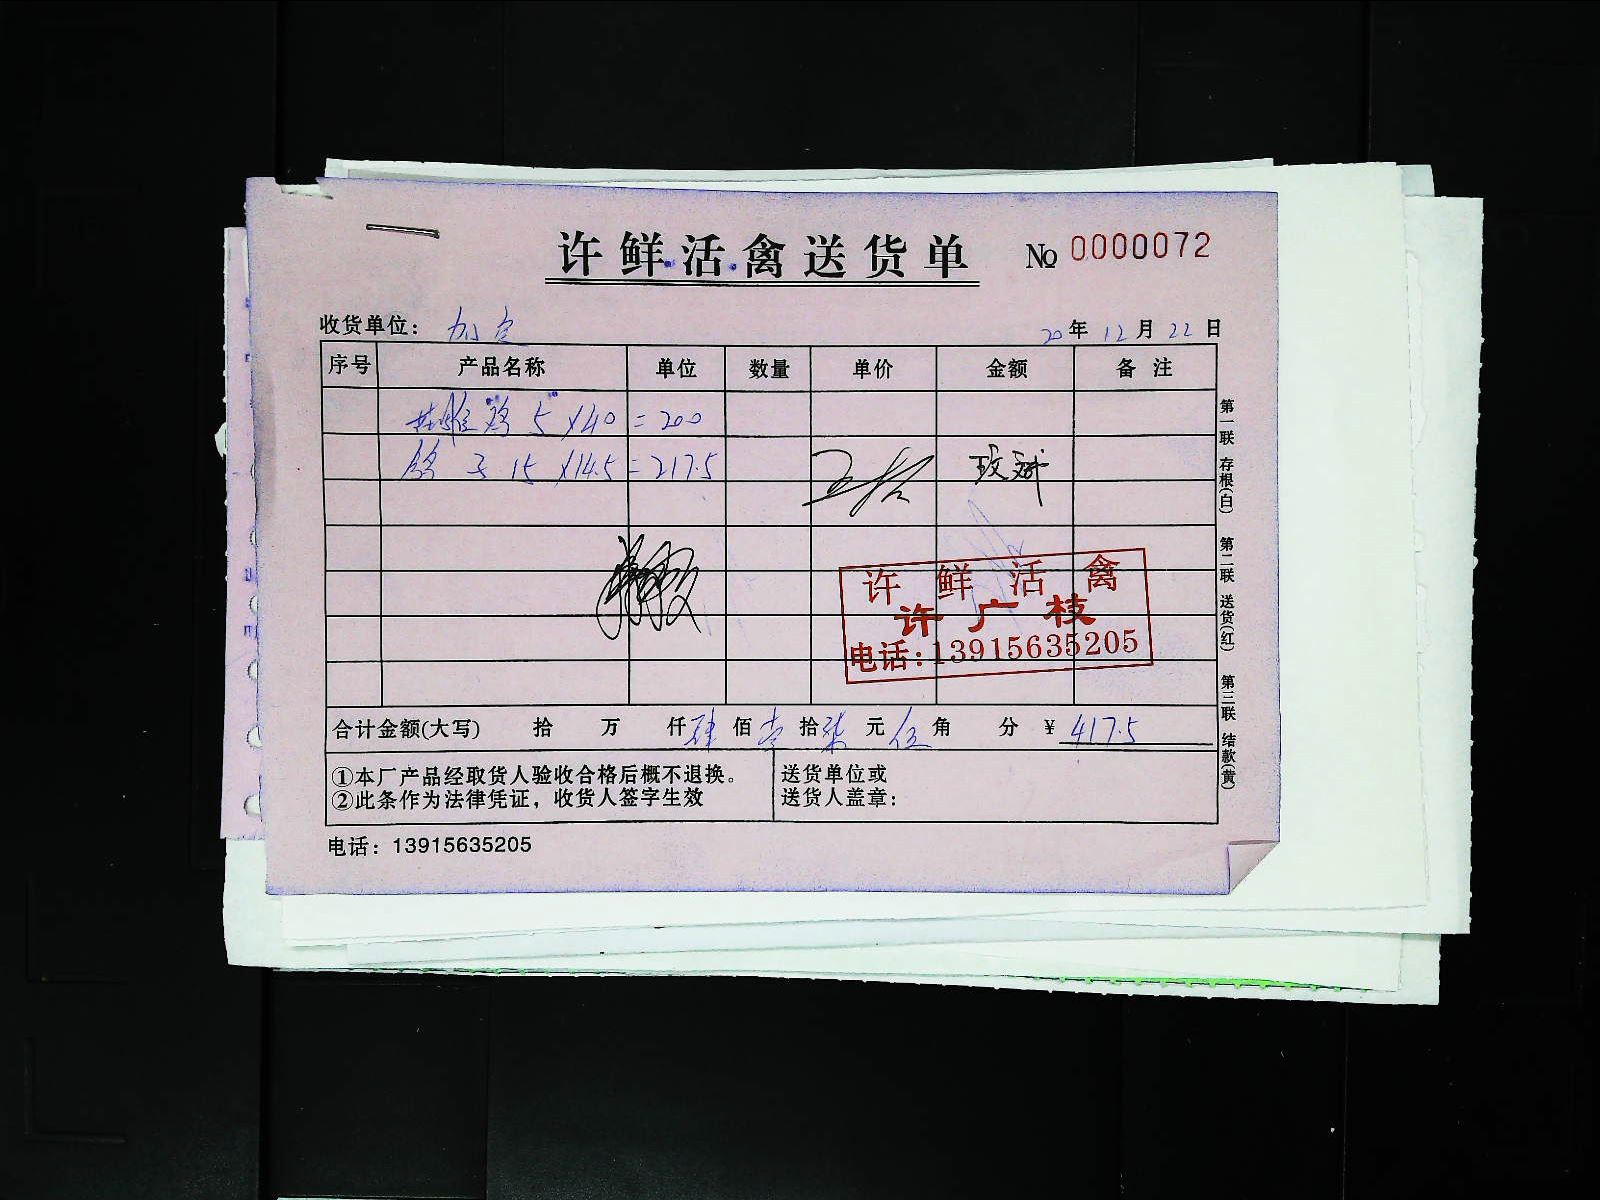 许鲜活禽送货单 № 0000072
收货单位： 加定 20年12月22日
序号 产品名称 单位 数量 单价 金额 备注
鸡 5×40=200
鸽子 15×14.5=217.5
许鲜活禽
许广枝
电话:13915635205
合计金额(大写) 拾 万 仟 肆佰 壹拾 柒元 伍角 分 ¥ 417.5
①本厂产品经取货人验收合格后概不退换。
②此条作为法律凭证，收货人签字生效
送货单位或
送货人盖章：
电话：13915635205
第一联 存根(白) 第二联 送货(红) 第三联 结款(黄)